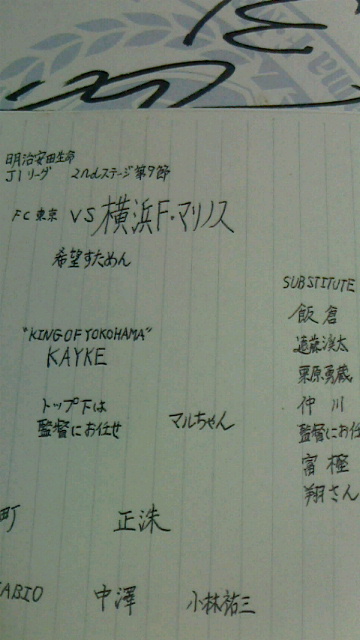 明治安田生命
J1リーグ 2ndステージ第9節
FC東京 VS 横浜F・マリノス
希望すためん
"KING OF YOKOHAMA"
KAYKE
トップ下は
監督にお任せ
マルちゃん
町
正洙
ABIO
中澤
小林祐三
SUBSTITUTE
飯倉
遠藤渓太
栗原勇蔵
仲川
監督にお任
富樫
翔さん